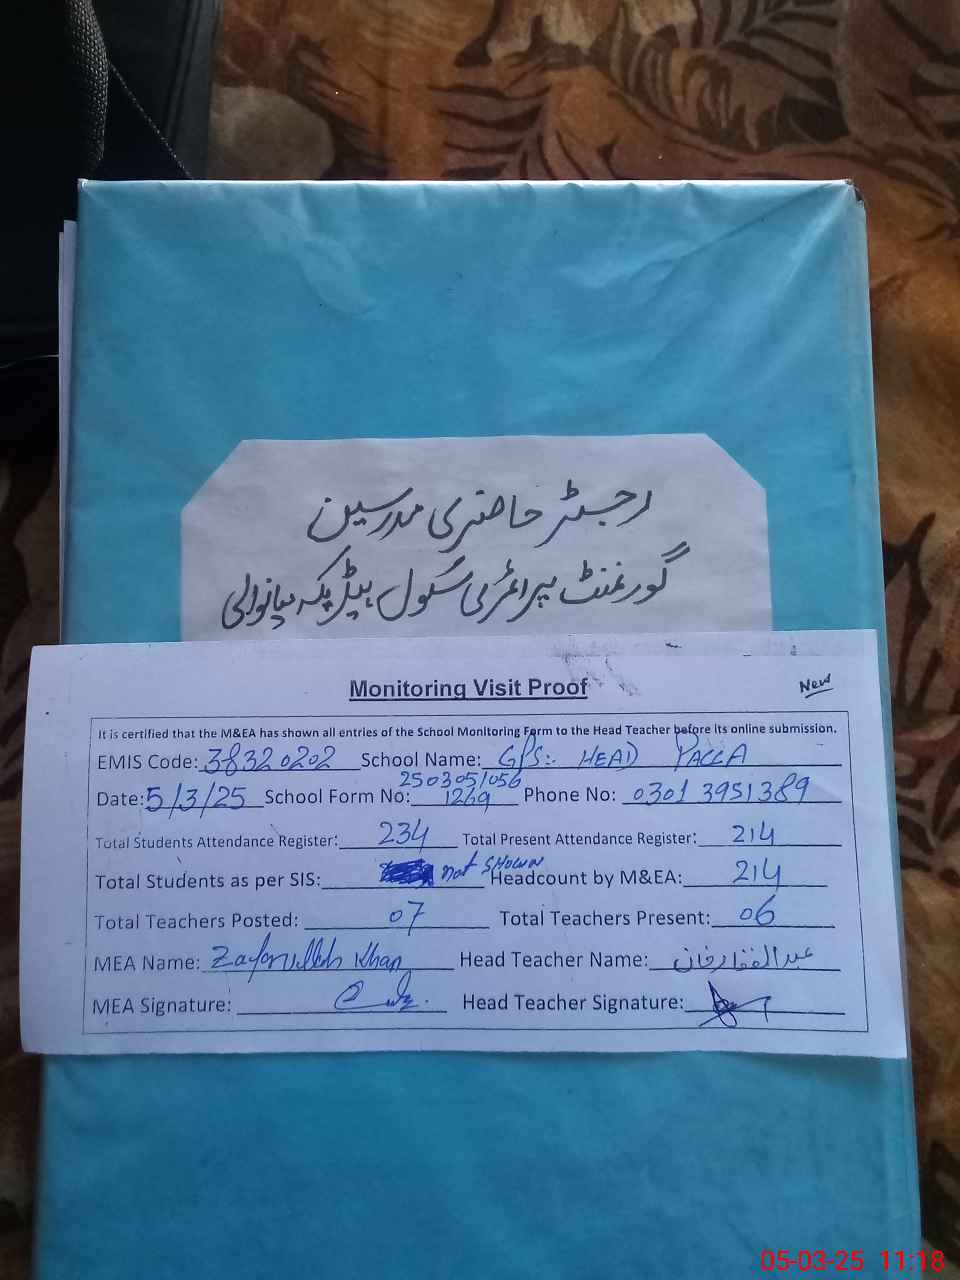 رجسٹر حاضری مدرسین
گورنمنٹ پرائمری سکول ہیڈ پکہ میانوالی
Monitoring Visit Proof
New
It is certified that the M&EA has shown all entries of the School Monitoring Form to the Head Teacher before its online submission.
EMIS Code: 38320202 School Name: GPS:. HEAD PACCA
250305/056
Date: 5/3/25 School Form No: 1269 Phone No: 0301 3951389
Total Students Attendance Register: 234 Total Present Attendance Register: 214
Total Students as per SIS: not SHOWN Headcount by M&EA: 214
Total Teachers Posted: 07 Total Teachers Present: 06
MEA Name: Zafarullah Khan Head Teacher Name: عبدالغفار خان
MEA Signature: Head Teacher Signature:
05-03-25 11:18